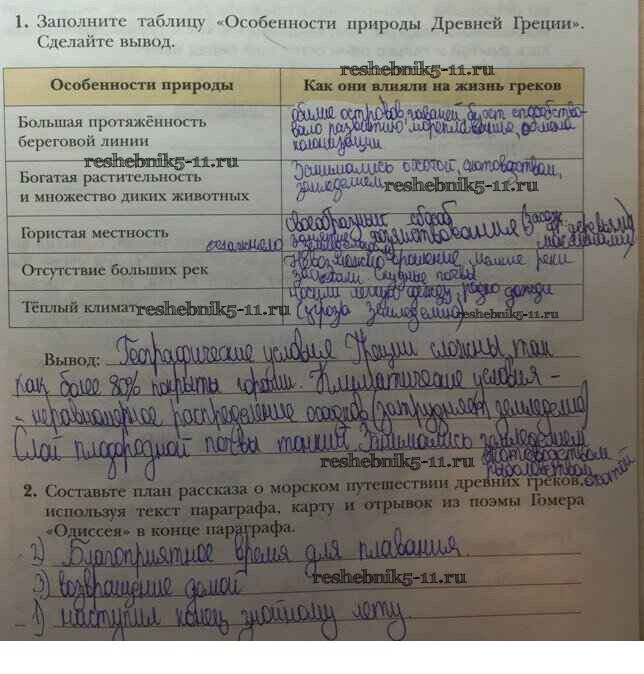 1. Заполните таблицу «Особенности природы Древней Греции».
Сделайте вывод.
reshebnik5-11.ru
Особенности природы
Как они влияли на жизнь греков
Большая протяжённость
береговой линии
обилие островов, гаваней будет способство-
вало развитию мореплавание, обмена
колонизации
reshebnik5-11.ru
Богатая растительность
и множество диких животных
Занимались охотой, скотоводством,
земледелием
reshebnik5-11.ru
Гористая местность
своеобразный способ
хозяйствования
осложнало
занятие земледелием
деревьями
маслинами)
Отсутствие больших рек
Невозможно орошение, мелкие реки
скудные почвы
Тёплый климат
Носили легкую одежду, редко дожди
(угроза земледелию)
reshebnik5-11.ru
Вывод: Географические условия Греции сложны, так
как более 80% покрыты горами. Климатические условия -
- неравномерное распределение осадков (затрудняет земледелие)
Слой плодородной почвы тонкий. Занимались земледелием
скотоводством
рыболовством, охотой
reshebnik5-11.ru
2. Составьте план рассказа о морском путешествии древних греков,
используя текст параграфа, карту и отрывок из поэмы Гомера
«Одиссея» в конце параграфа.
2) Благоприятное время для плавания.
3) возвращение домой
reshebnik5-11.ru
1) наступил конец знойному лету.